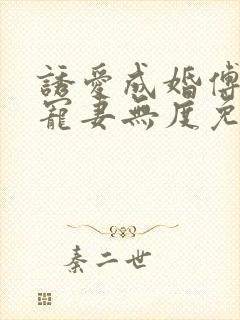 誘愛成婚傅
寵妻無度免
秦二世